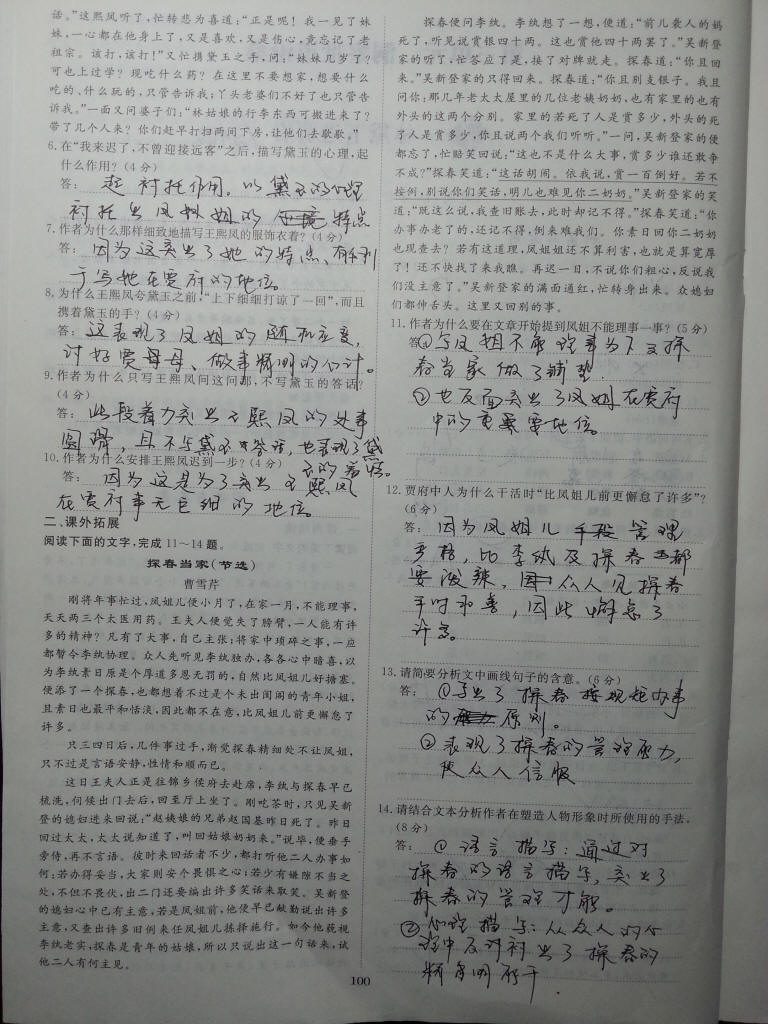 话。”这熙凤听了，忙转悲为喜道：“正是呢！我一见了妹
妹，一心都在他身上了，又是喜欢，又是伤心，竟忘记了老
祖宗。该打，该打！”又忙携黛玉之手，问：“妹妹几岁了？
可也上过学？现吃什么药？在这里不要想家，想要什么
吃的、什么玩的，只管告诉我；丫头老婆们不好了也只管告
诉我。”一面又问婆子们：“林姑娘的行李东西可搬进来了？
带了几个人来？你们赶早打扫两间下房，让他们去歇歇。”
6.在“我来迟了，不曾迎接远客”之后，描写黛玉的心理，起
什么作用？(4分)
答：起衬托作用。以黛玉的心理
衬托出凤姐的特点
7.作者为什么那样细致地描写王熙凤的服饰衣着？(4分)
答：因为这突出了她的特点、有利
于写她在贾府的地位。
8.为什么王熙凤夸黛玉之前，“上下细细打谅了一回”，而且
携着黛玉的手？(4分)
答：这表现了凤姐的随机应变，
讨好贾母、做事精明的心计。
9.作者为什么只写王熙凤问这问那，不写黛玉的答话？
(4分)
答：此段着力突出王熙凤的处事
圆滑，且不写黛玉答话，也表现了黛
玉的
10.作者为什么安排王熙凤迟到一步？(4分)
答：因为这是为了突出王熙凤
在贾府事无巨细的地位。
二、课外拓展
阅读下面的文字，完成11～14题。
探春当家(节选)
曹雪芹
刚将年事忙过，凤姐儿便小月了，在家一月，不能理事，
天天两三个太医用药。王夫人便觉失了膀臂，一人能有许
多的精神？凡有了大事，自己主张；将家中琐碎之事，一应
都暂令李纨协理。众人先听见李纨独办，各各心中暗喜，以
为李纨素日原是个厚道多恩无罚的，自然比凤姐儿好搪塞。
便添了一个探春，也都想着不过是个未出闺阁的青年小姐，
且素日也最平和恬淡，因此都不在意，比凤姐儿前更懈怠了
许多。
只三四日后，几件事过手，渐觉探春精细处不让凤姐，
只不过是言语安静，性情和顺而已。
这日王夫人正是往锦乡侯府去赴席，李纨与探春早已
梳洗，伺候出门去后，回至厅上坐了。刚吃茶时，只见吴新
登的媳妇进来回说：“赵姨娘的兄弟赵国基昨日死了。昨日
回过太太，太太说知道了，叫回姑娘奶奶来。”说毕，便垂手
旁侍，再不言语。彼时来回话者不少，都打听他二人办事如
何：若办得妥当，大家则安个畏惧之心；若少有嫌隙不当之
处，不但不畏伏，出二门还要编出许多笑话来取笑。吴新登
的媳妇心中已有主意，若是凤姐前，他便早已献勤说出许多
主意，又查出许多旧例来任凤姐儿拣择施行。如今他藐视
李纨老实，探春是青年的姑娘，所以只说出这一句话来，试
他二人有何主见。
探春便问李纨。李纨想了一想，便道：“前儿袭人的妈
死了，听见说赏银四十两。这也赏他四十两罢了。”吴新登
家的听了，忙答应了是，接了对牌就走。探春道：“你且回
来。”吴新登家的只得回来。探春道：“你且别支银子。我且
问你：那几年老太太屋里的几位老姨奶奶，也有家里的也有
外头的这两个分别。家里的若死了人是赏多少，外头的死
了人是赏多少，你且说两个我们听听。”一问，吴新登家的便
都忘了，忙赔笑回说：“这也不是什么大事，赏多少谁还敢争
不成？”探春笑道：“这话胡闹。依我说，赏一百倒好。若不
按例，别说你们笑话，明儿也难见你二奶奶。”吴新登家的笑
道：“既这么说，我查旧账去，此时却记不得。”探春笑道：“你
办事办老了的，还记不得，倒来难我们。你素日回你二奶奶
也现查去？若有这道理，凤姐姐还不算利害，也就是算宽厚
了！还不快找了来我瞧。再迟一日，不说你们粗心，反说我
们没主意了。”吴新登家的满面通红，忙转身出来。众媳妇
们都伸舌头。这里又回别的事。
11.作者为什么要在文章开始提到凤姐不能理事一事？(5分)
答：①写凤姐不能理事为下文探
春当家做了铺垫。
②也反面突出了凤姐在贾府
中的重要地位。
12.贾府中人为什么干活时“比凤姐儿前更懈怠了许多”？
(6分)
答：因为凤姐儿手段管理
严格，比李纨及探春都
要泼辣，众人见探春
平时和善，因此懈怠了
许多。
13.请简要分析文中画线句子的含意。(6分)
答：①写出了探春按规矩办事
的原则。
②表现了探春的管理能力，
使众人信服
14.请结合文本分析作者在塑造人物形象时所使用的手法。
(8分)
答：①语言描写：通过对
探春的语言描写，突出了
探春的管理才能。
②心理描写：从众人的心
理中反衬出了探春的
精明能干
100